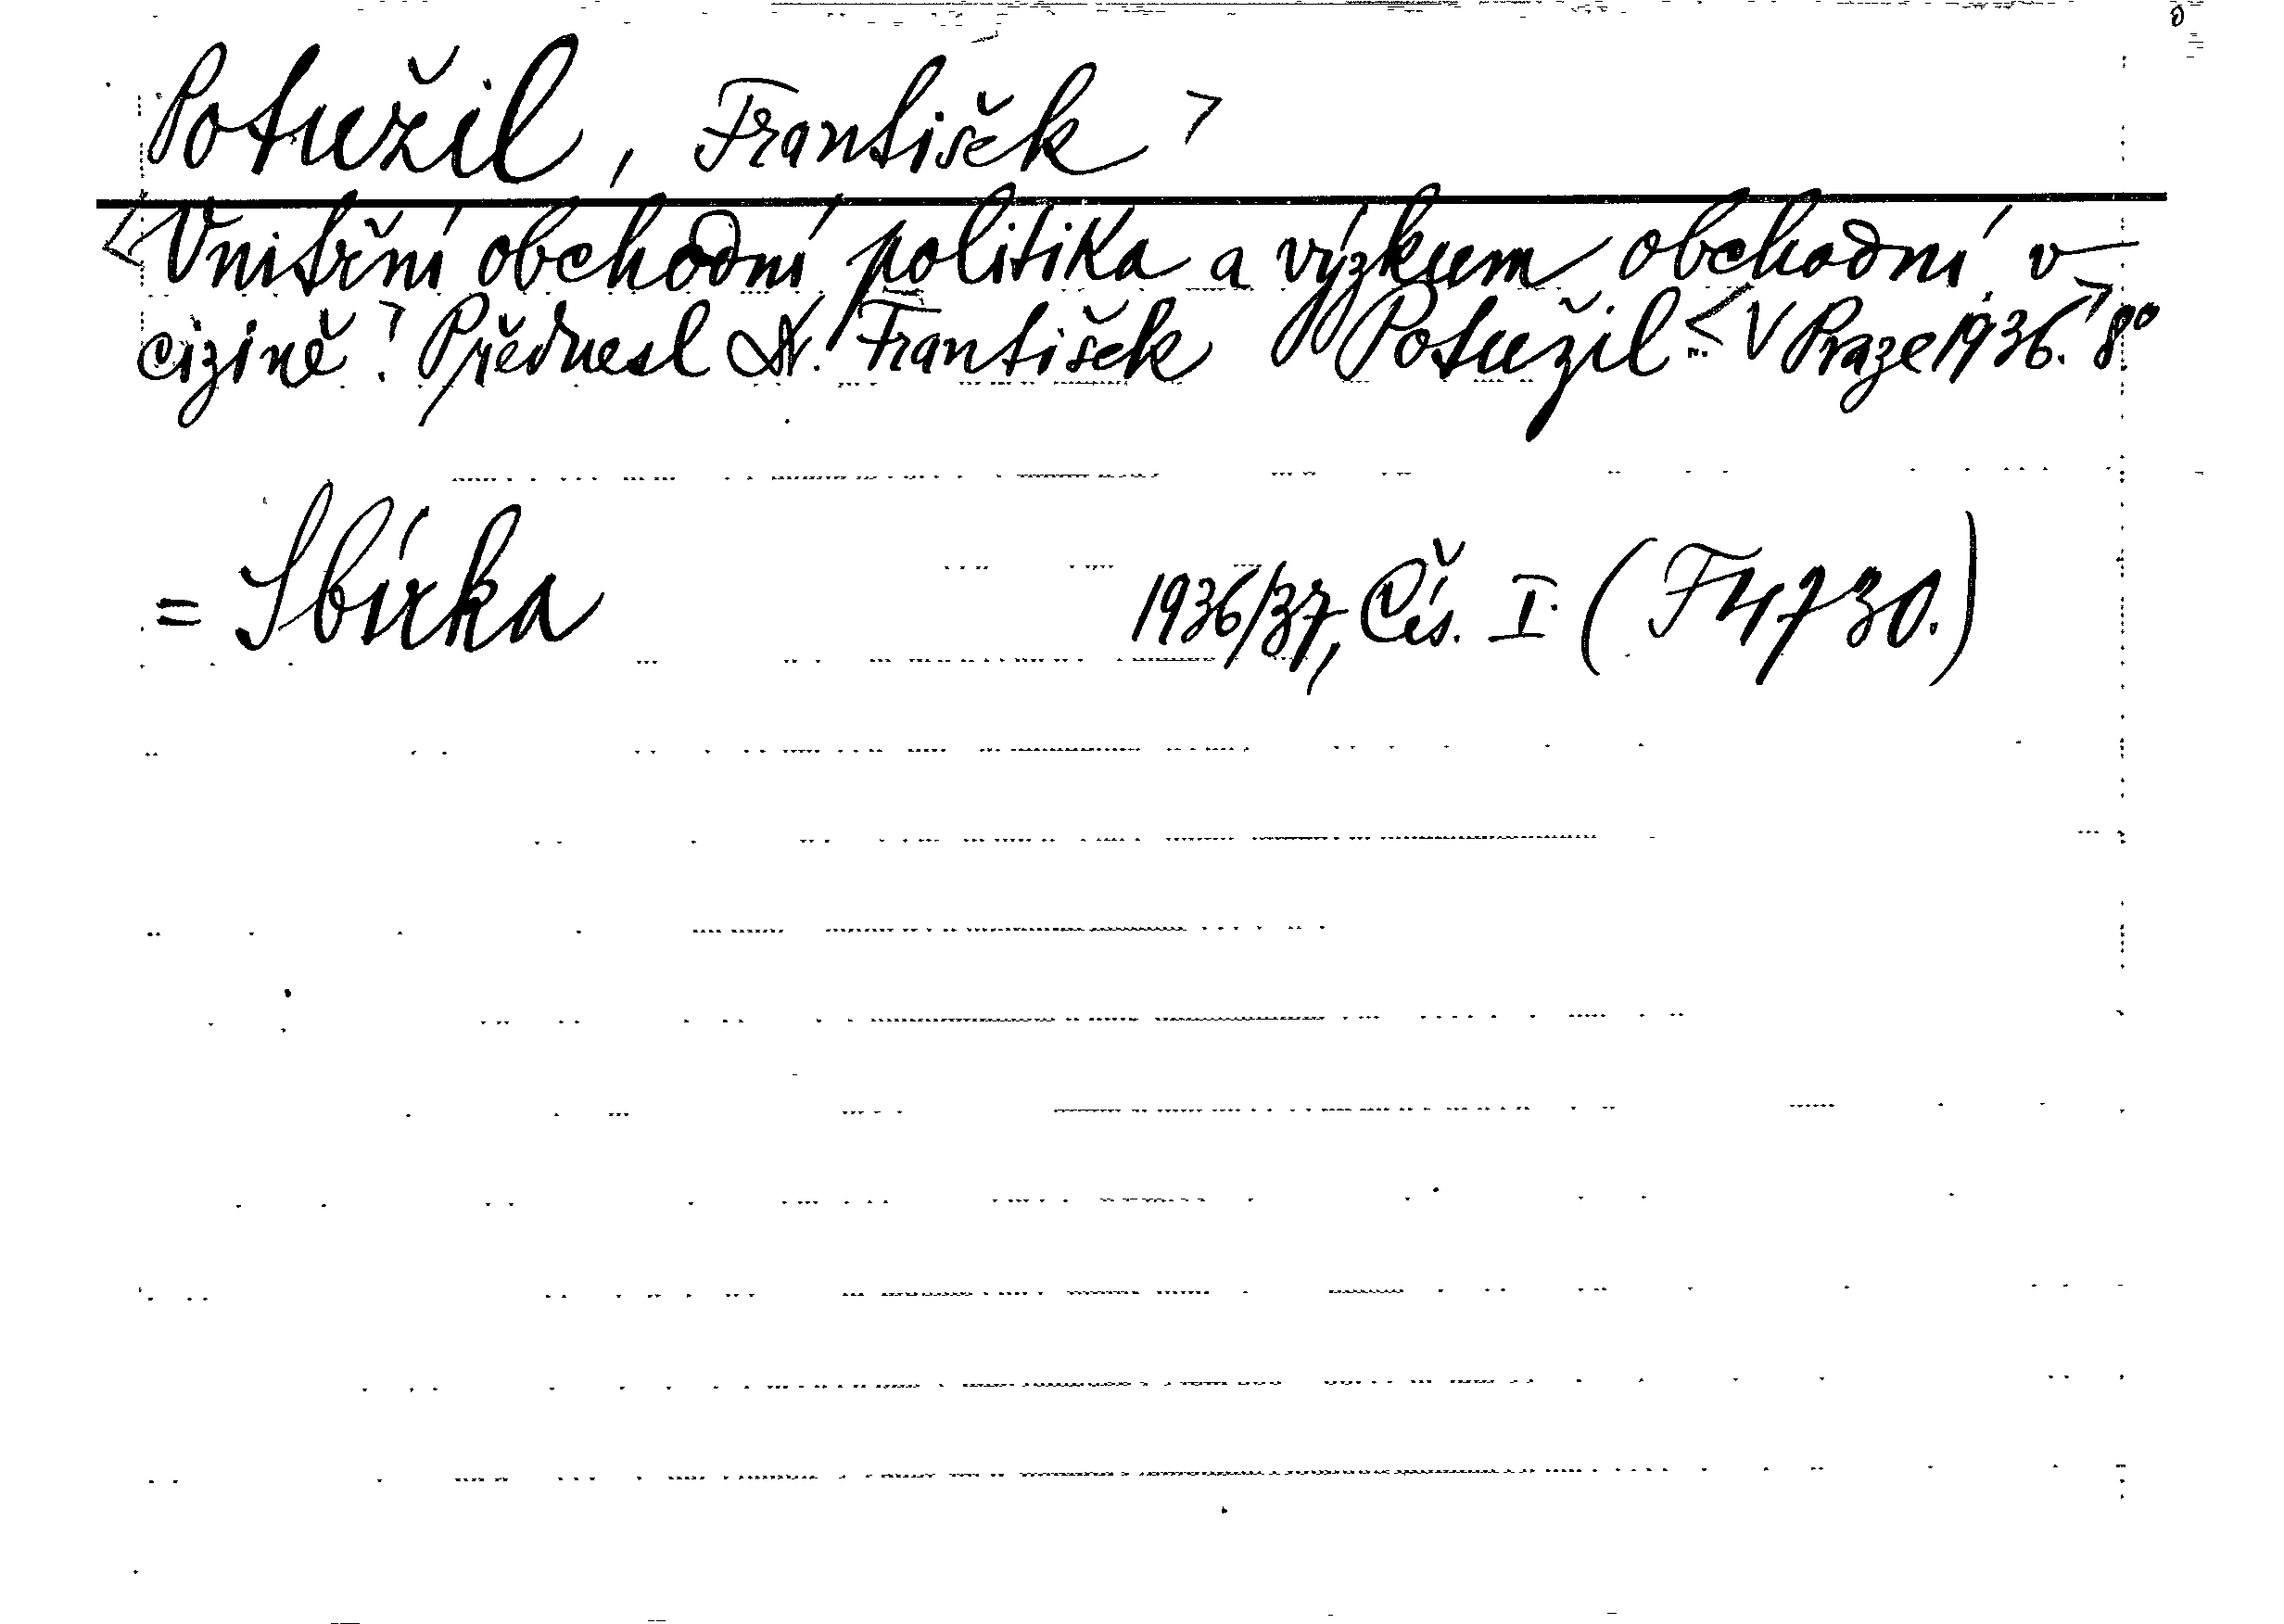 Potužil, František >
<Vnitřní obchodní politika a výzkum obchodní v
cizině.> Přednesl Dr. František Potužil. < V Praze 1936.> 8°.
= Sbírka 1936/37, Čís. I. (F 4730.)